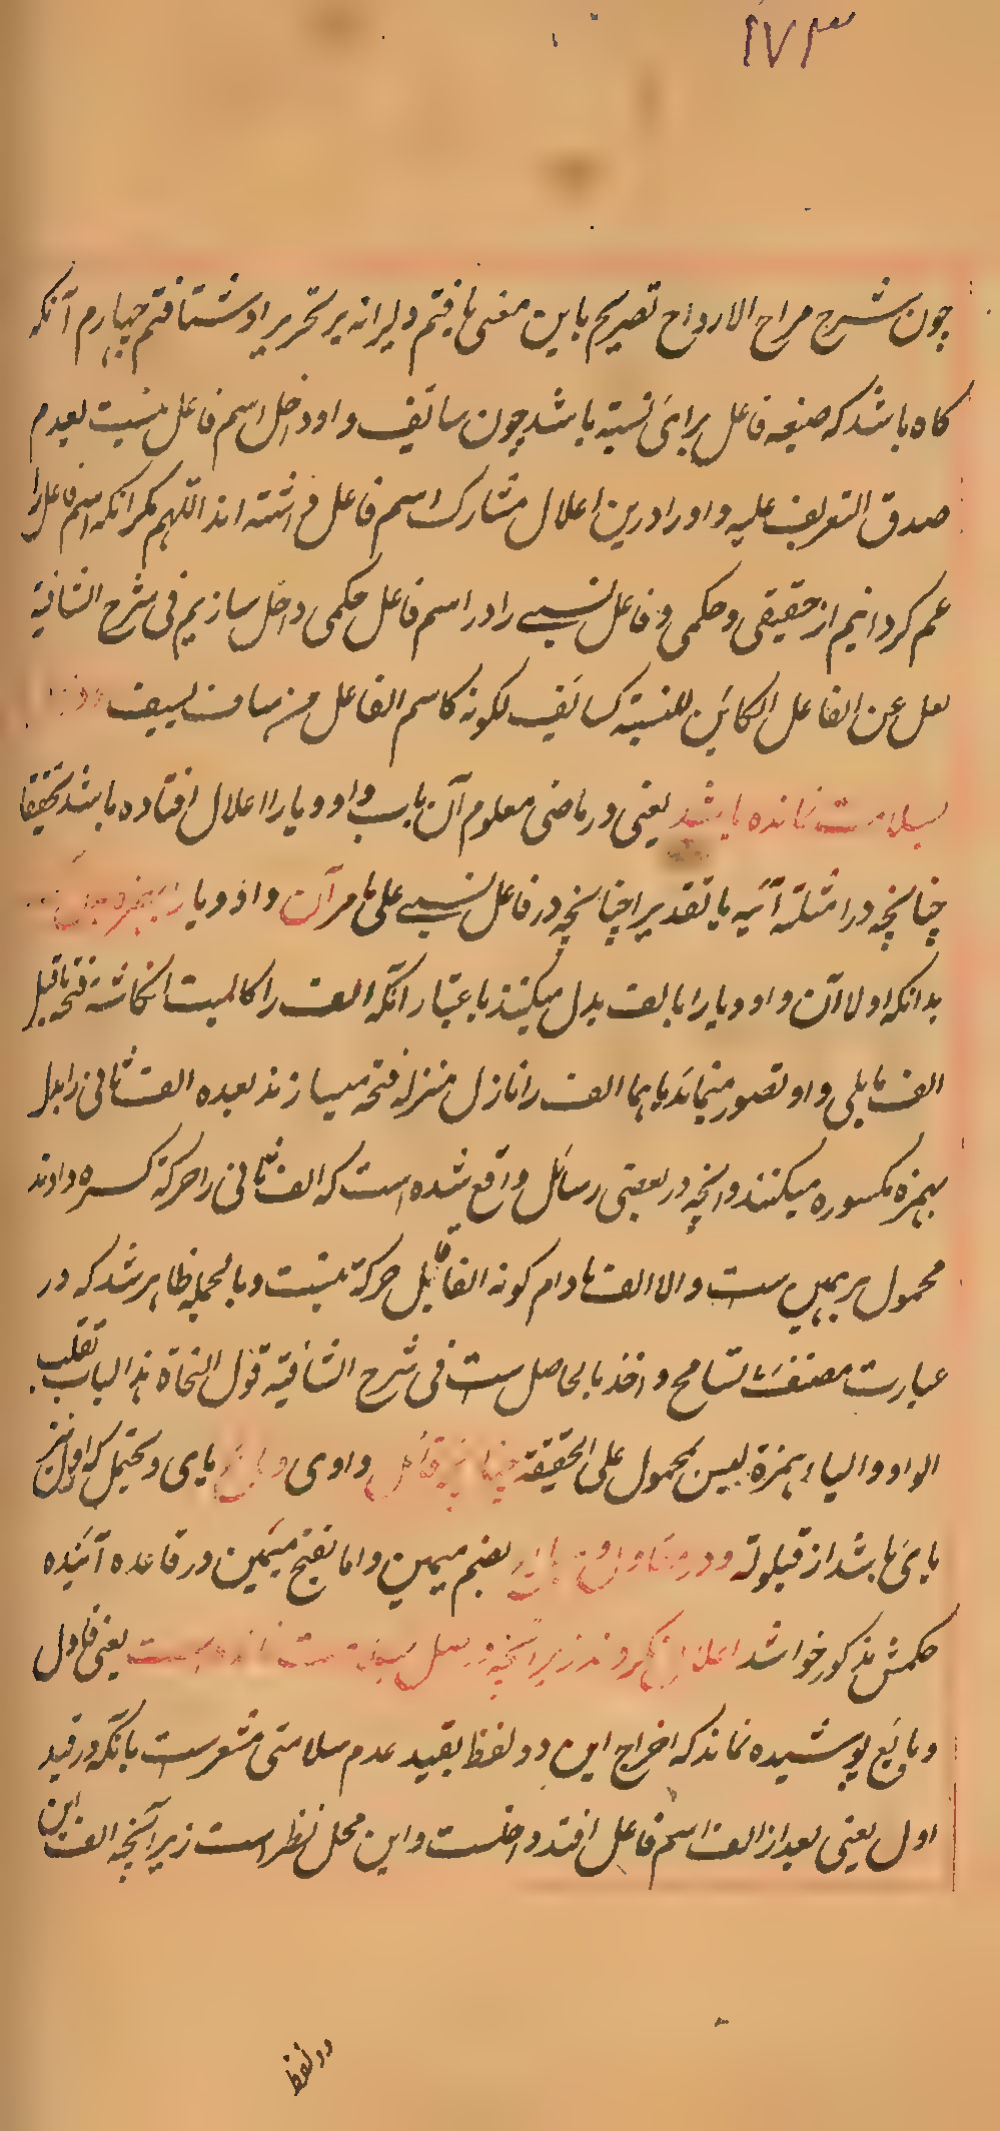 ۱۷۳
چون شرح مراح الارواح تصریح باین معنی یافتم دلیرانه بر تحریر او شتافتم چهارم آنکه
کاه باشد که صیغه فاعل برای نسبة باشد چون سائف و او داخل اسم فاعل نیست بعدم
صدق التعریف علیه و او را درین اعلال مشارک اسم فاعل داشته اند اللهم مکر انکه اسم فاعل را
عم کردانیم از حقیقی و حکمی و فاعل نسبے را در اسم فاعل حکمی داخل سازیم فی شرح الشافیة
یعل عن الفاعل الکائن للنسبة کسائف لکونه کاسم الفاعل من ساف یسیف
بسلامت نمانده باشد یعنی در ماضی معلوم آن باب واو و یا را اعلال افتاده باشد تحقیقا
چنانچه در امثلة آتیه یا تقدیرا چنانچه در فاعل نسبے علی ما مر آن واو و یا را بهمزه
بدانکه اولا آن واو و یا را بالف بدل میکنند باعتبار آنکه الف را کالمیت انکاشته فتحه ماقبل
الف تا یلی واو تصور مینمایند یا هما الف را نازل منزله فتحه میسازند بعده الف ثانی را بدل
بهمزه مکسوره میکنند و انچه در بعضی رسائل واقع شده است که الف ثانی را حرکة کسره دادند
محمول بر همین ست و الا الف مادام کونه الفا قابل حرکة نیست و بالجمله ظاهر شد که در
عبارت مصنف تسامح و اخذ بالحاصل ست فی شرح الشافیة قول النحاة هذا الباب تقلب
الواو و الیاء همزة لیس بمحمول علی الحقیقة چنانچه قائل واوی و بائع یای و یحتمل که اول نیز
یای باشد از قیلولة و در مقاول و مبائع بضم میمین و اما بفتح میمین در قاعده آینده
حکمش مذکور خواهد شد اعلال نکردند زیرانچه در اصل بسلامت مانده است یعنی قاول
و بایع پوشیده نماند که اخراج این دو لفظ بقید عدم سلامتی مشعرست بانکه در قید
اول یعنی بعد از الف اسم فاعل افتد داخلست و این محل نظر است زیرانچه الف این
دو لفظ